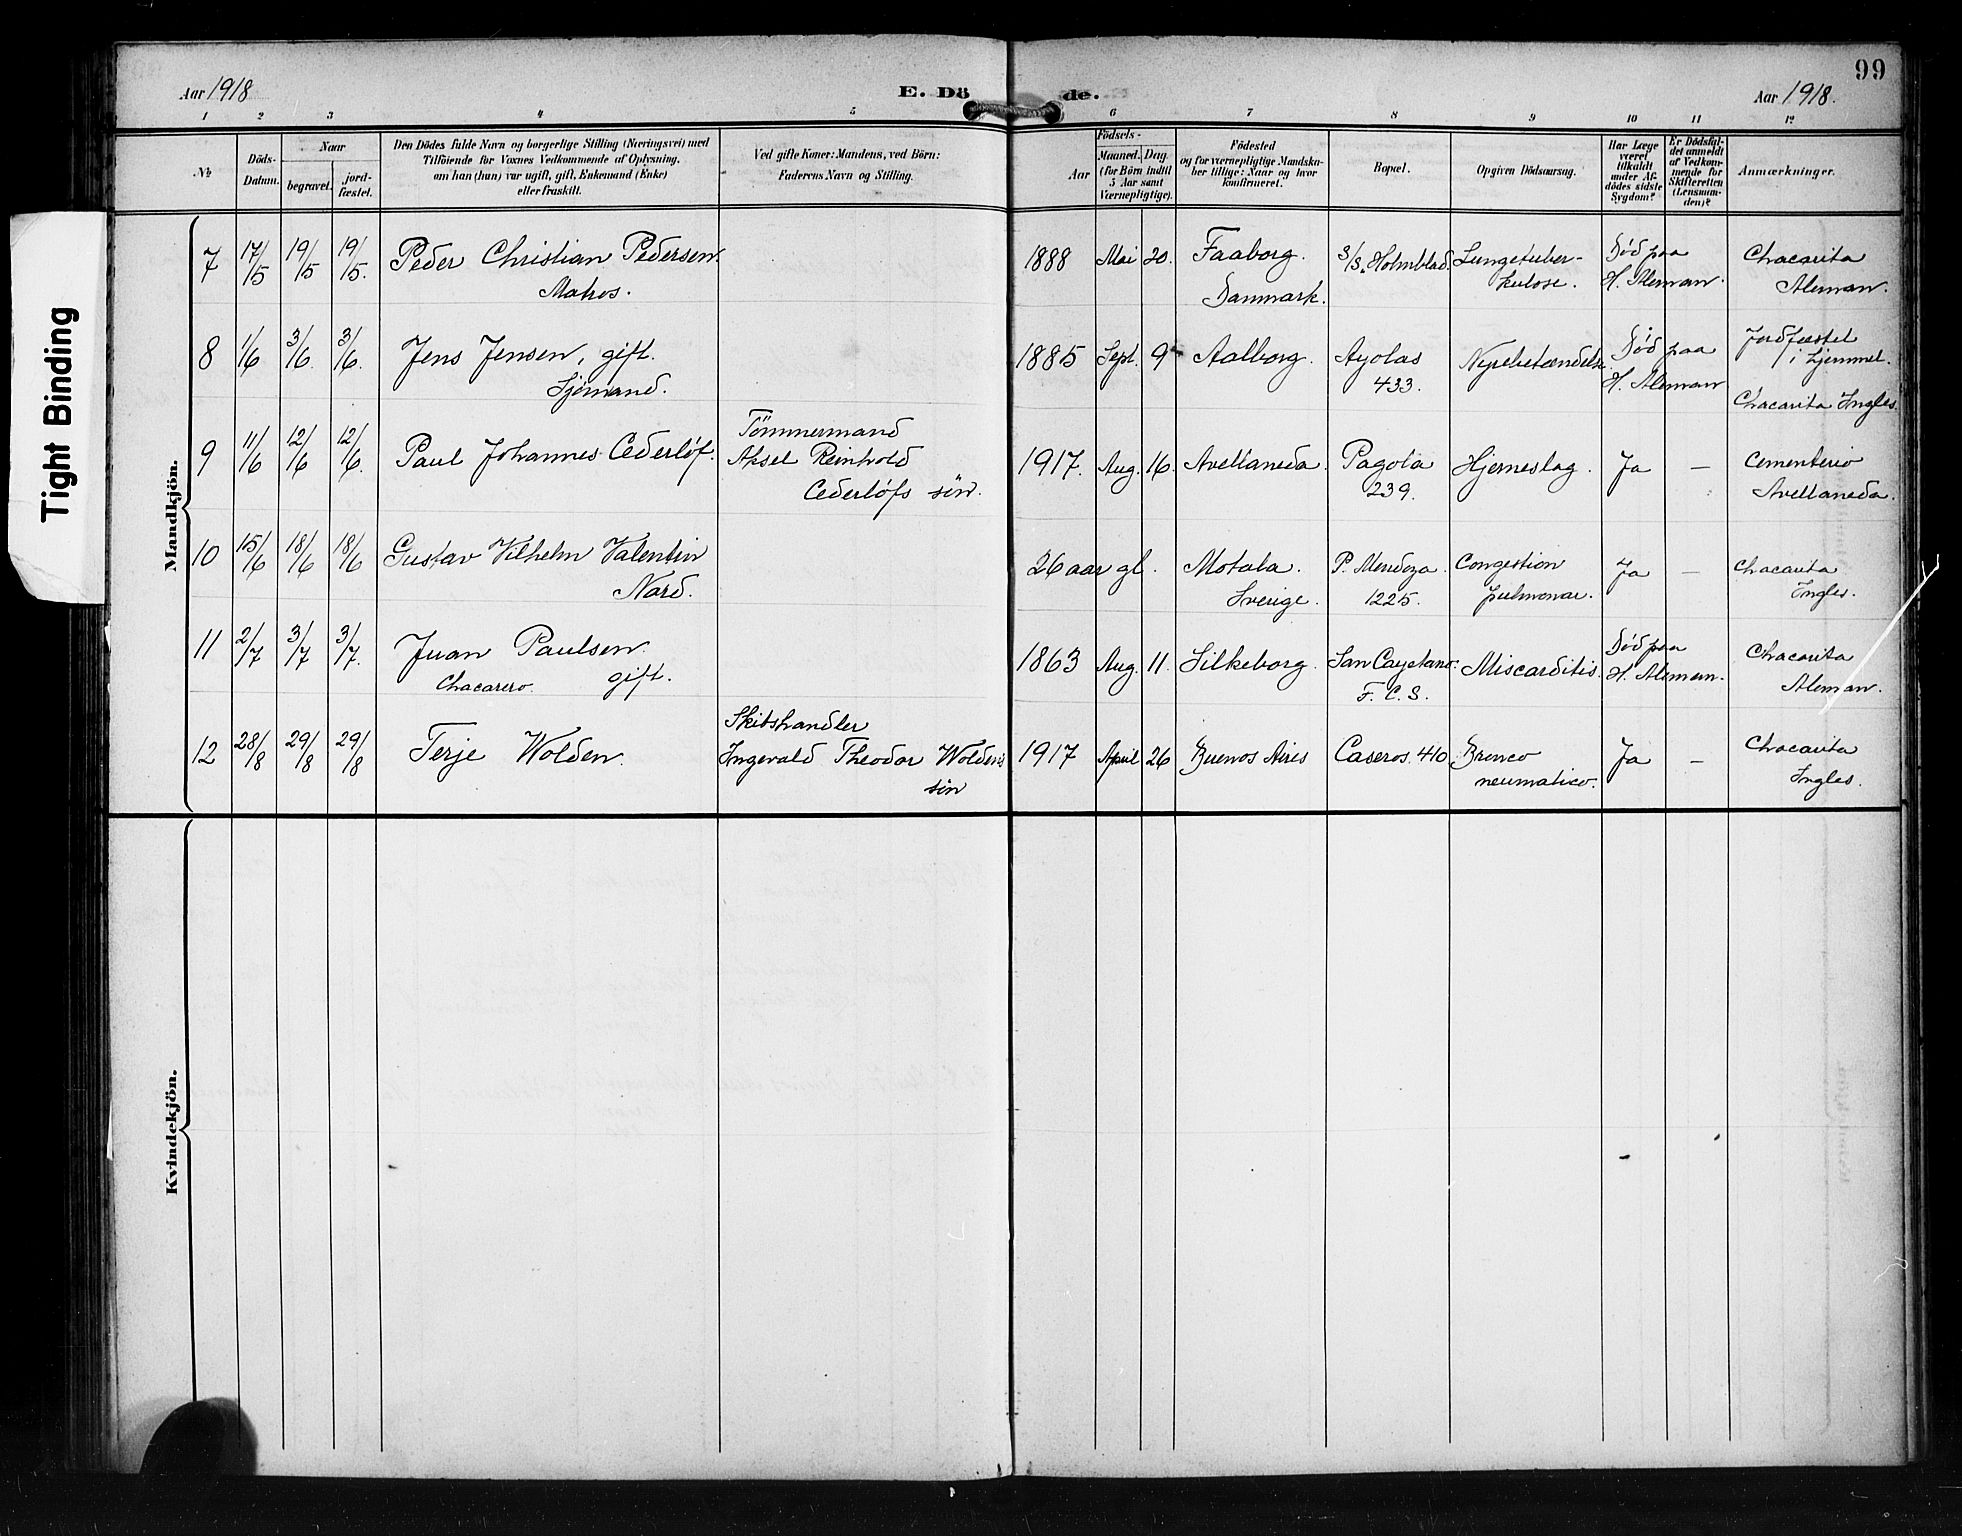 Tight Binding
Aar 1918
E. Dö de.
Aar 1918.
99
1 2 3 4 5 6 7 8 9 10 11 12
№
Döds-
Datum.
Naar
begravet.
jord-
fæstet.
Den Dödes fulde Navn og borgerlige Stilling (Næringsvei) med
Tilföiende for Voxnes Vedkommende af Oplysning,
om han (hun) var ugift, gift, Enkemand (Enke)
eller fraskilt.
Ved gifte Koner: Mandens, ved Börn:
Faderens Navn og Stilling.
Födsels-
Aar
Maaned. Dag
(for Börn indtil
5 Aar samt
Værnepligtige).
Födested
og for værnepligtige Mandska-
ber tillige: Naar og hvor
konfirmeret.
Bopæl.
Opgiven Dödsaarsag.
Har Læge
været
tilkaldt
under Af-
dödes sidste
Sygdom?
Er Dödsfal-
det anmeldt
af Vedkom-
mende for
Skifteretten
(Lensman-
den)?
Anmærkninger.
Mandkjön.
7 17/5 19/5 19/5. Peder Christian Pedersen. 1888 Mai 20. Faaborg. S/S. Holmblad. Lungetuber- Død paa Chacarita
Matros. Danmark. kulose. H. Aleman. Aleman.
8 1/6 3/6. 3/6. Jens Jensen, gift. 1885 Sept. 9 Aalborg. Ayolas Nyrebetændelse. Død paa Jordfæstet
Sjømand. 433. H. Aleman i Hjemmet.
Chacarita Ingles.
9 11/6 12/6 12/6. Paul Johannes Cederlöf. Tömmermand
Aksel Reinhold 1917. Aug. 16. Avellaneda. Pagola Hjerneslag. Ja — Cementerio
Cederlöfs sön. 239. Avellaneda.
10 15/6 18/6 18/6 Gustav Vilhelm Valentin 26 aar gl. Motala. P. Mendoza. Congestion Ja — Chacarita
Nord. Sverige. 1225. pulmonar. Ingles.
11 2/7 3/7 3/7. Juan Paulsen. 1863 Aug. 11. Silkeborg. San Cayetano. Miscarditis. Død paa Chacarita
Chacarero. gift. F. C. S. H. Aleman. Aleman.
12 28/8 29/8 29/8 Terje Wolden. Skibshandler
Ingevald Theodor Woldens 1917 April 26 Buenos Aires Caseros 410. Bronco Ja — Chacarita
sön neumatico. Ingles.
Kvindekjön.